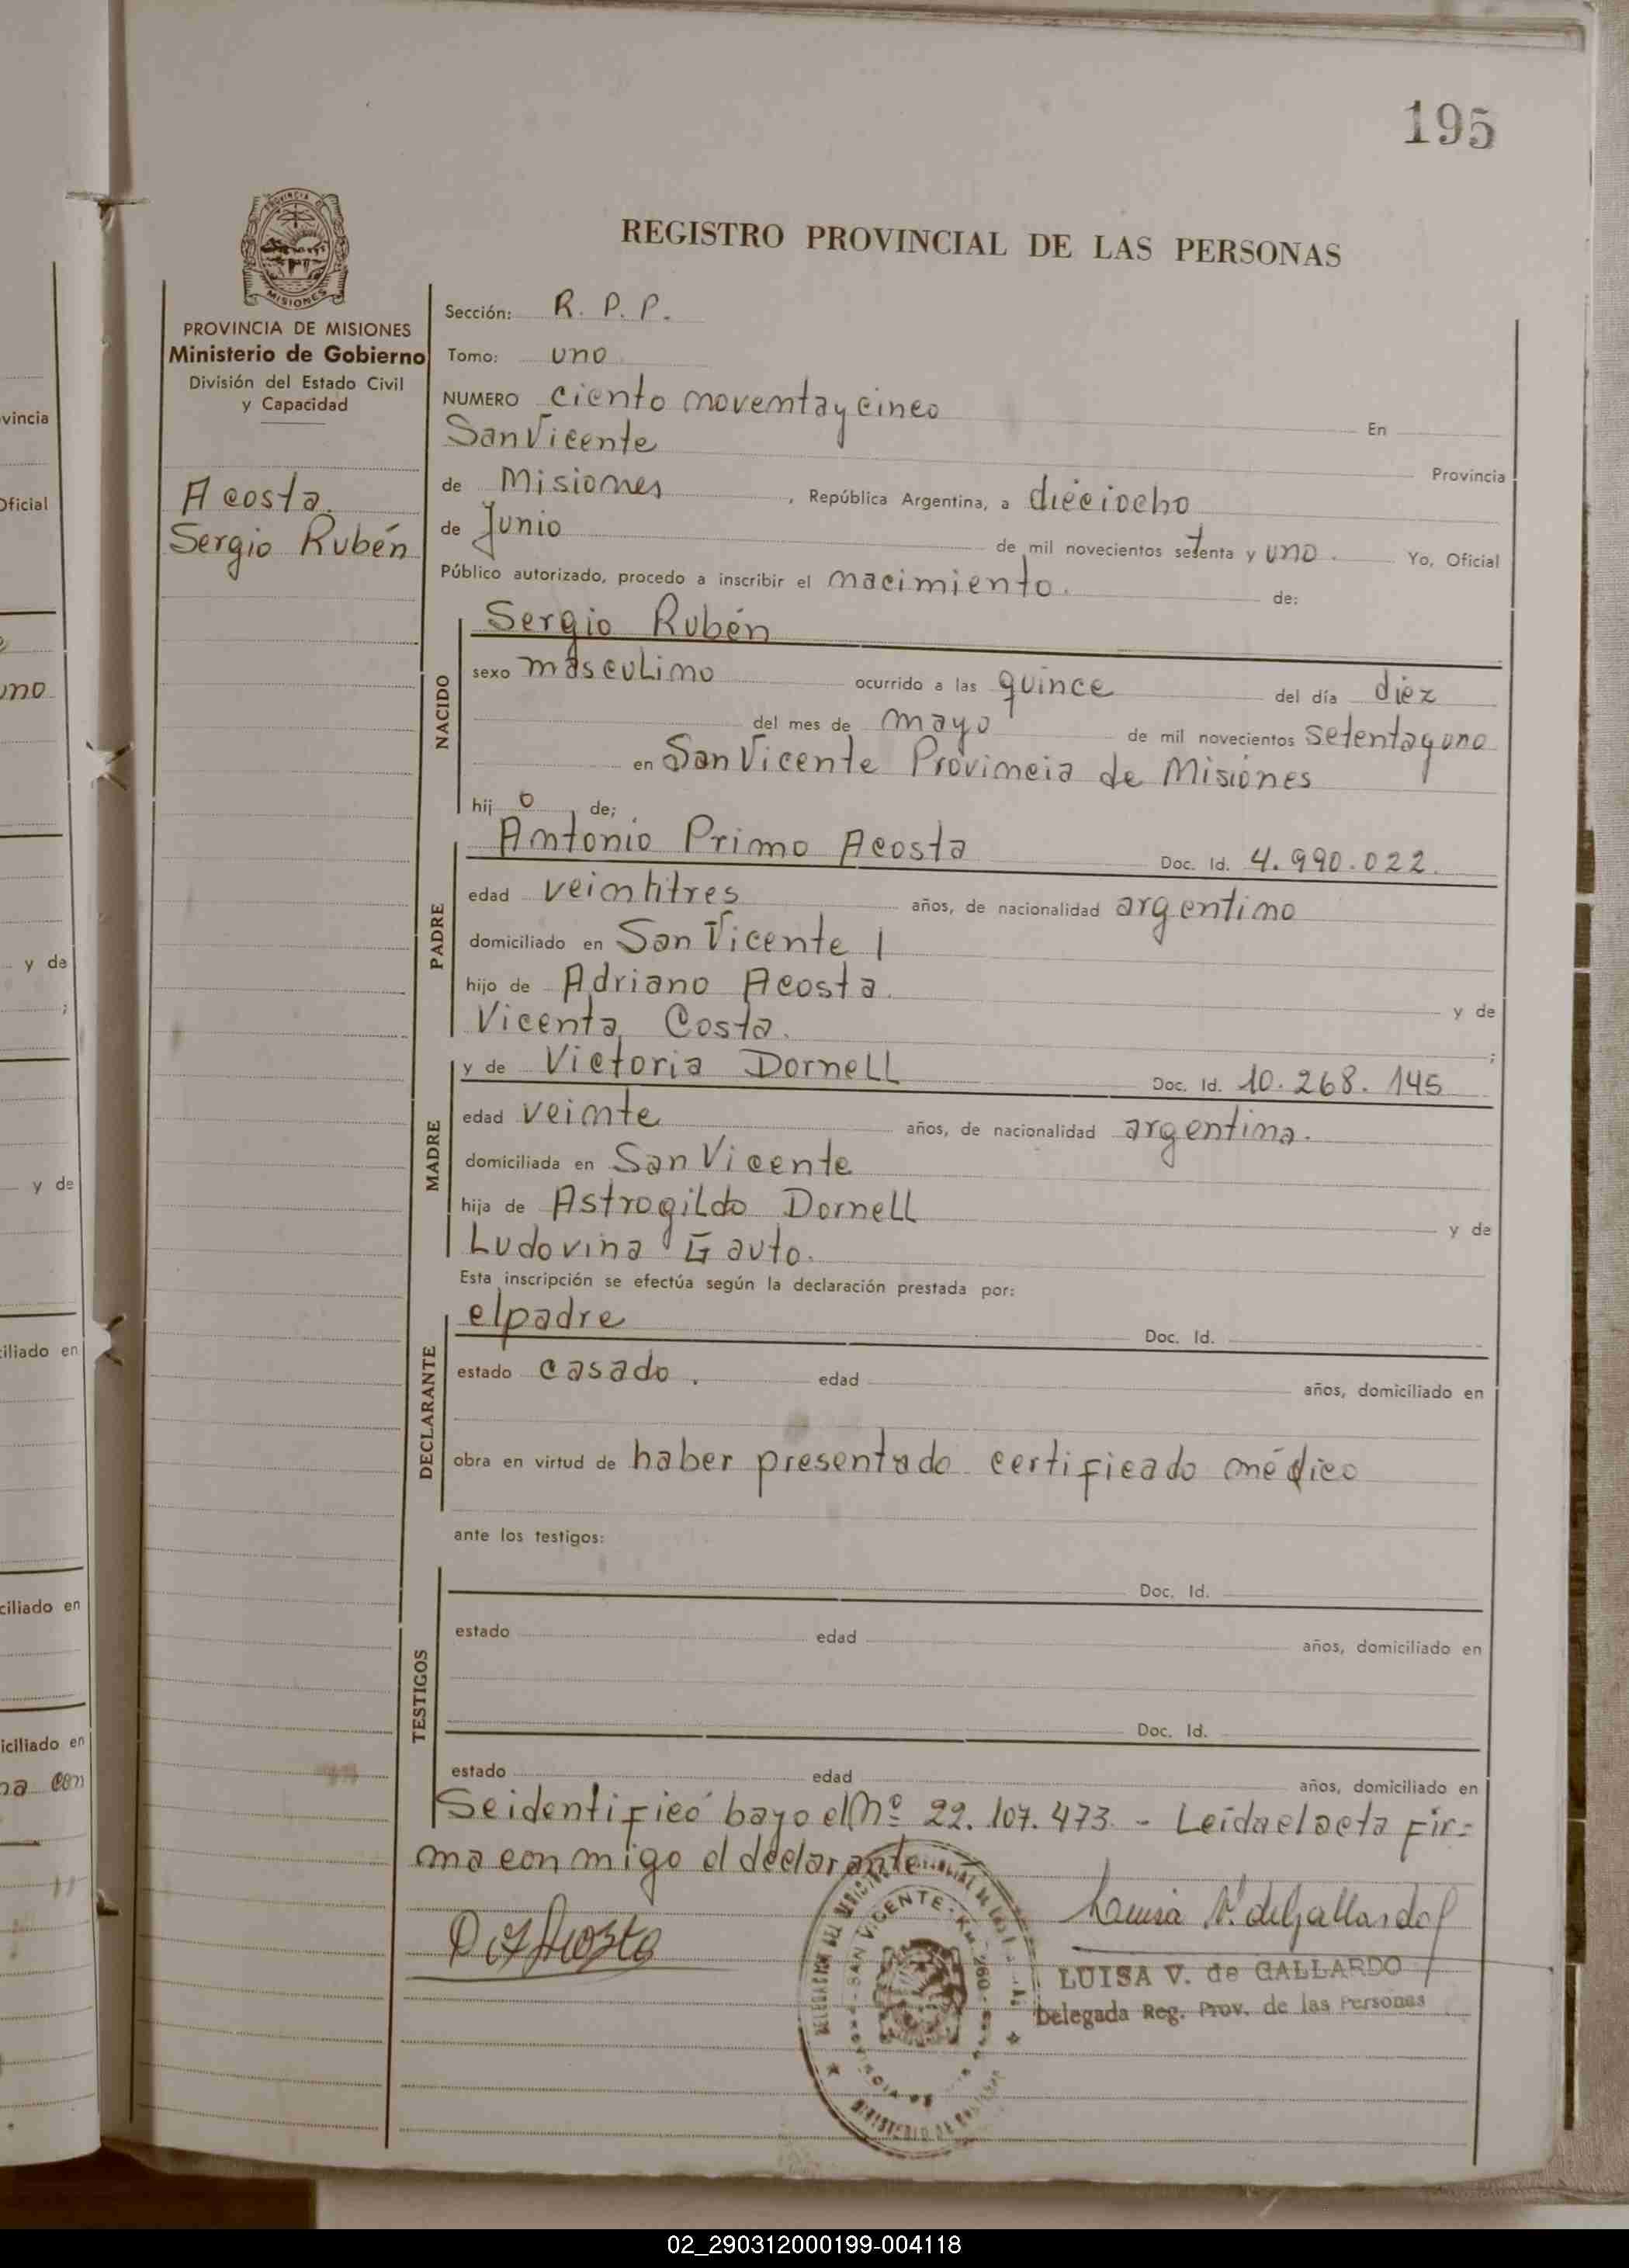 195
PROVINCIA DE
MISIONES
REGISTRO PROVINCIAL DE LAS PERSONAS
PROVINCIA DE MISIONES
Ministerio de Gobierno
División del Estado Civil
y Capacidad
Acosta.
Sergio Rubén
Sección: R. P. P.
Tomo: uno
NUMERO ciento noventaycinco En
San Vicente Provincia
de Misiones, República Argentina, a dieciocho
de Junio de mil novecientos setenta y uno. Yo, Oficial
Público autorizado, procedo a inscribir el nacimiento. de:
NACIDO
Sergio Rubén
sexo masculino ocurrido a las quince del día diez
del mes de mayo de mil novecientos setentayuno
en San Vicente Provincia de Misiones
hijo de;
PADRE
Antonio Primo Acosta Doc. Id. 4.990.022.
edad veintitres años, de nacionalidad argentino
domiciliado en San Vicente
hijo de Adriano Acosta. y de
Vicenta Costa. ;
MADRE
y de Victoria Dornell Doc. Id. 10.268.145
edad veinte años, de nacionalidad argentina.
domiciliada en San Vicente
hija de Astrogildo Dornell y de
Ludovina Gauto.
Esta inscripción se efectúa según la declaración prestada por:
DECLARANTE
el padre Doc. Id.
estado casado. edad años, domiciliado en
obra en virtud de haber presentado certificado médico
ante los testigos:
TESTIGOS
Doc. Id.
estado edad años, domiciliado en
Doc. Id.
estado edad años, domiciliado en
Se identificó bajo el Nº 22.107.473 - Leída el acta fir=
ma conmigo el declarante
Acosta
Luisa V. de Gallardo
LUISA V. de GALLARDO
Delegada Reg. Prov. de las Personas
SAN VICENTE - Km. 260
vincia
Oficial
uno
y de
;
y de
ciliado en
ciliado en
iciliado en
na con
02_290312000199-004118